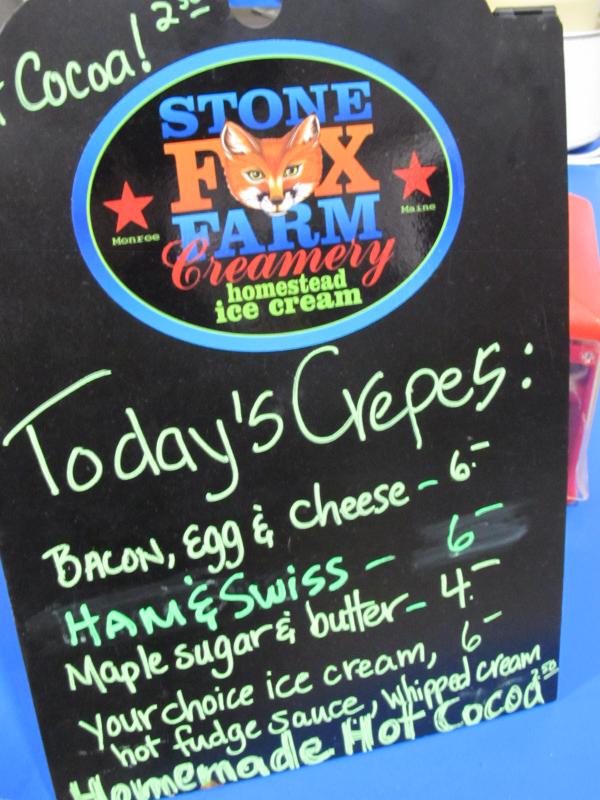 Cocoa! 2.50
STONE
FOX
FARM
Monroe Maine
Creamery
homestead
ice cream
Today's Crepes:
BACON, Egg & cheese - 6.-
HAM & SWISS - 6-
Maple sugar & butter - 4.-
your choice ice cream, 6-
hot fudge sauce, whipped cream
Homemade Hot Cocoa 2.50